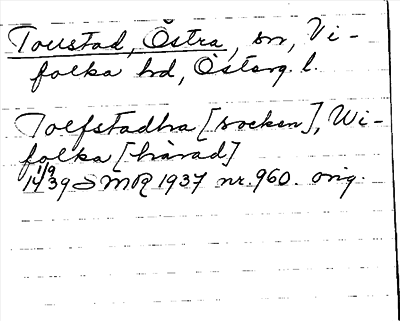 Toustad, Östra, sn, Vi-
folka hd, Österg. l.
Tolfstadha [socken], Wi-
folka [härad]
1/9 1439 SMR 1937 nr. 960. orig.